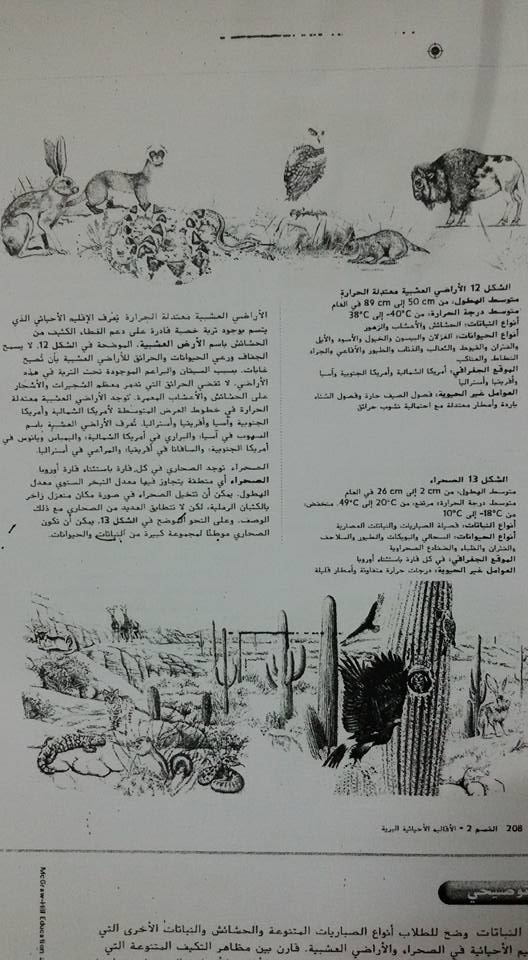 الشكل 12 الأراضي العشبية معتدلة الحرارة
متوسط الهطول: من 50 cm إلى 89 cm في العام
متوسط درجة الحرارة: من 40°C- إلى 38°C
أنواع النباتات: الحشائش والأعشاب والزهور
أنواع الحيوانات: الغزلان والبيسون والخيول والأسود والأيل
والفئران والقيوط والثعالب والذئاب والطيور والأفاعي والجراد
النطاط والعناكب
الموقع الجغرافي: أمريكا الشمالية وأمريكا الجنوبية وآسيا
وأفريقيا وأستراليا
العوامل غير الحيوية: فصول الصيف حارة وفصول الشتاء
باردة وأمطار معتدلة مع احتمالية نشوب حرائق
الأراضي العشبية معتدلة الحرارة يُعرف الإقليم الأحيائي الذي
يتسم بوجود تربة خصبة قادرة على دعم الغطاء الكثيف من
الحشائش باسم الأرض العشبية، الموضحة في الشكل 12. لا يسمح
الجفاف ورعي الحيوانات والحرائق للأراضي العشبية بأن تُصبح
غابات. بسبب السيقان والبراعم الموجودة تحت التربة في هذه
الأراضي، لا تقضي الحرائق التي تدمر معظم الشجيرات والأشجار
على الحشائش والأعشاب المعمرة. توجد الأراضي العشبية معتدلة
الحرارة في خطوط العرض المتوسطة لأمريكا الشمالية وأمريكا
الجنوبية وآسيا وأفريقيا وأستراليا. تُعرف الأراضي العشبية باسم
السهوب في آسيا؛ والبراري في أمريكا الشمالية؛ والبمباس ويانوس في
أمريكا الجنوبية؛ والسافانا في أفريقيا؛ والمراعي في أستراليا.
الصحراء توجد الصحاري في كل قارة باستثناء قارة أوروبا
الصحراء أي منطقة يتجاوز فيها معدل التبخر السنوي معدل
الهطول. يمكن أن تتخيل الصحراء في صورة مكان منعزل زاخر
بالكثبان الرملية، لكن لا تتطابق العديد من الصحاري مع ذلك
الوصف. وعلى النحو الموضح في الشكل 13، يمكن أن تكون
الصحاري موطنًا لمجموعة كبيرة من النباتات والحيوانات.
الشكل 13 الصحراء
متوسط الهطول: من 2 cm إلى 26 cm في العام
متوسط درجة الحرارة: مرتفع: من 20°C إلى 49°C، منخفض:
من 18°C- إلى 10°C
أنواع النباتات: فصيلة الصباريات والنباتات العصارية
أنواع الحيوانات: السحالي والبوبكات والطيور والسلاحف
والفئران والظباء والضفادع الصحراوية
الموقع الجغرافي: في كل قارة باستثناء أوروبا
العوامل غير الحيوية: درجات حرارة متفاوتة وأمطار قليلة
208 القسم 2 • الأقاليم الأحيائية البرية
McGraw-Hill Education
النباتات وضح للطلاب أنواع الصباريات المتنوعة والحشائش والنباتات الأخرى التي
في الصحراء والأراضي العشبية. قارن بين مظاهر التكيف المتنوعة التي